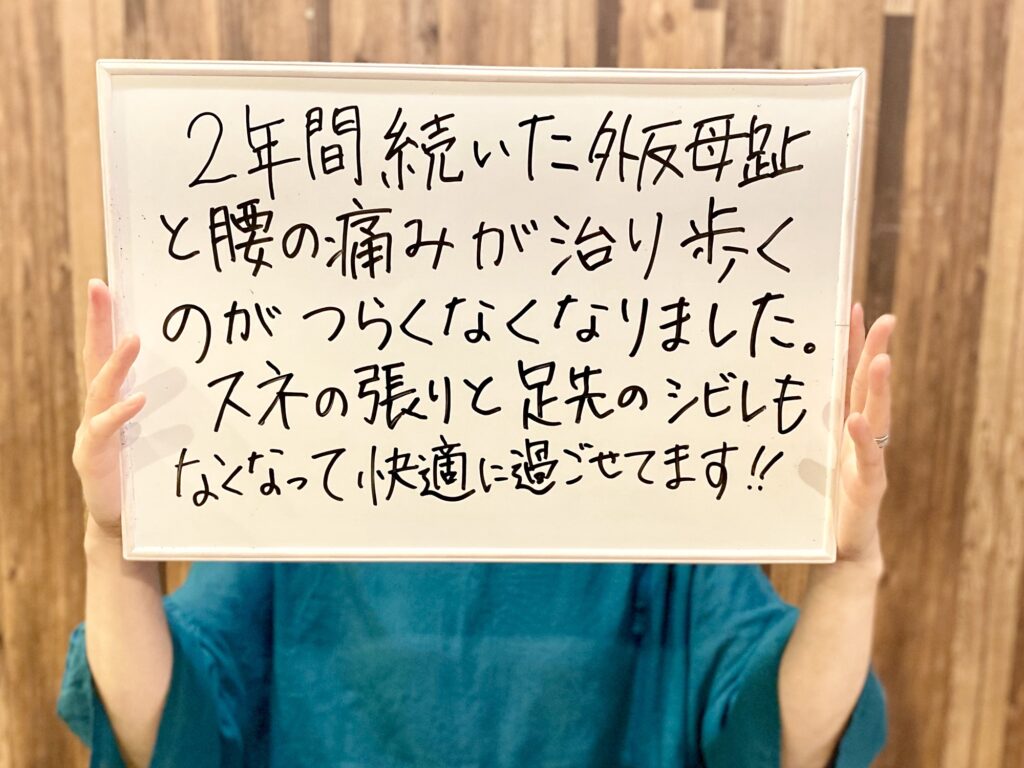 2年間続いた外反母趾
と腰の痛みが治り歩く
のがつらくなくなりました。
スネの張りと足先のシビレも
なくなって快適に過ごせてます!!